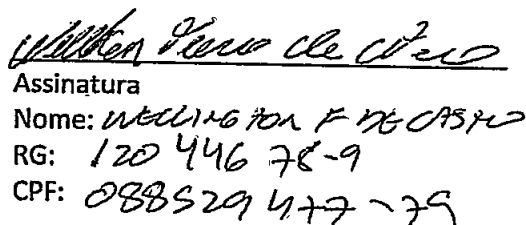 Assinatura
Nome: WELLINGTON F DE CASTRO
RG: 120 446 78-9
CPF: 088529477-79